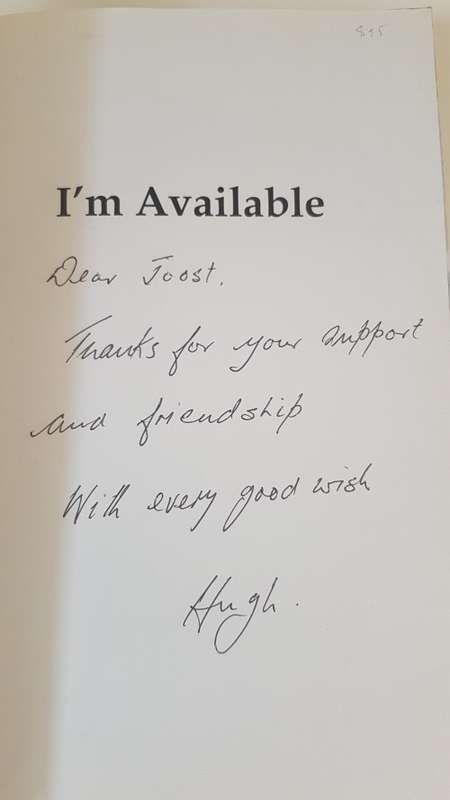 I'm Available
Dear Joost,
Thanks for your support
and friendship
With every good wish
Hugh.